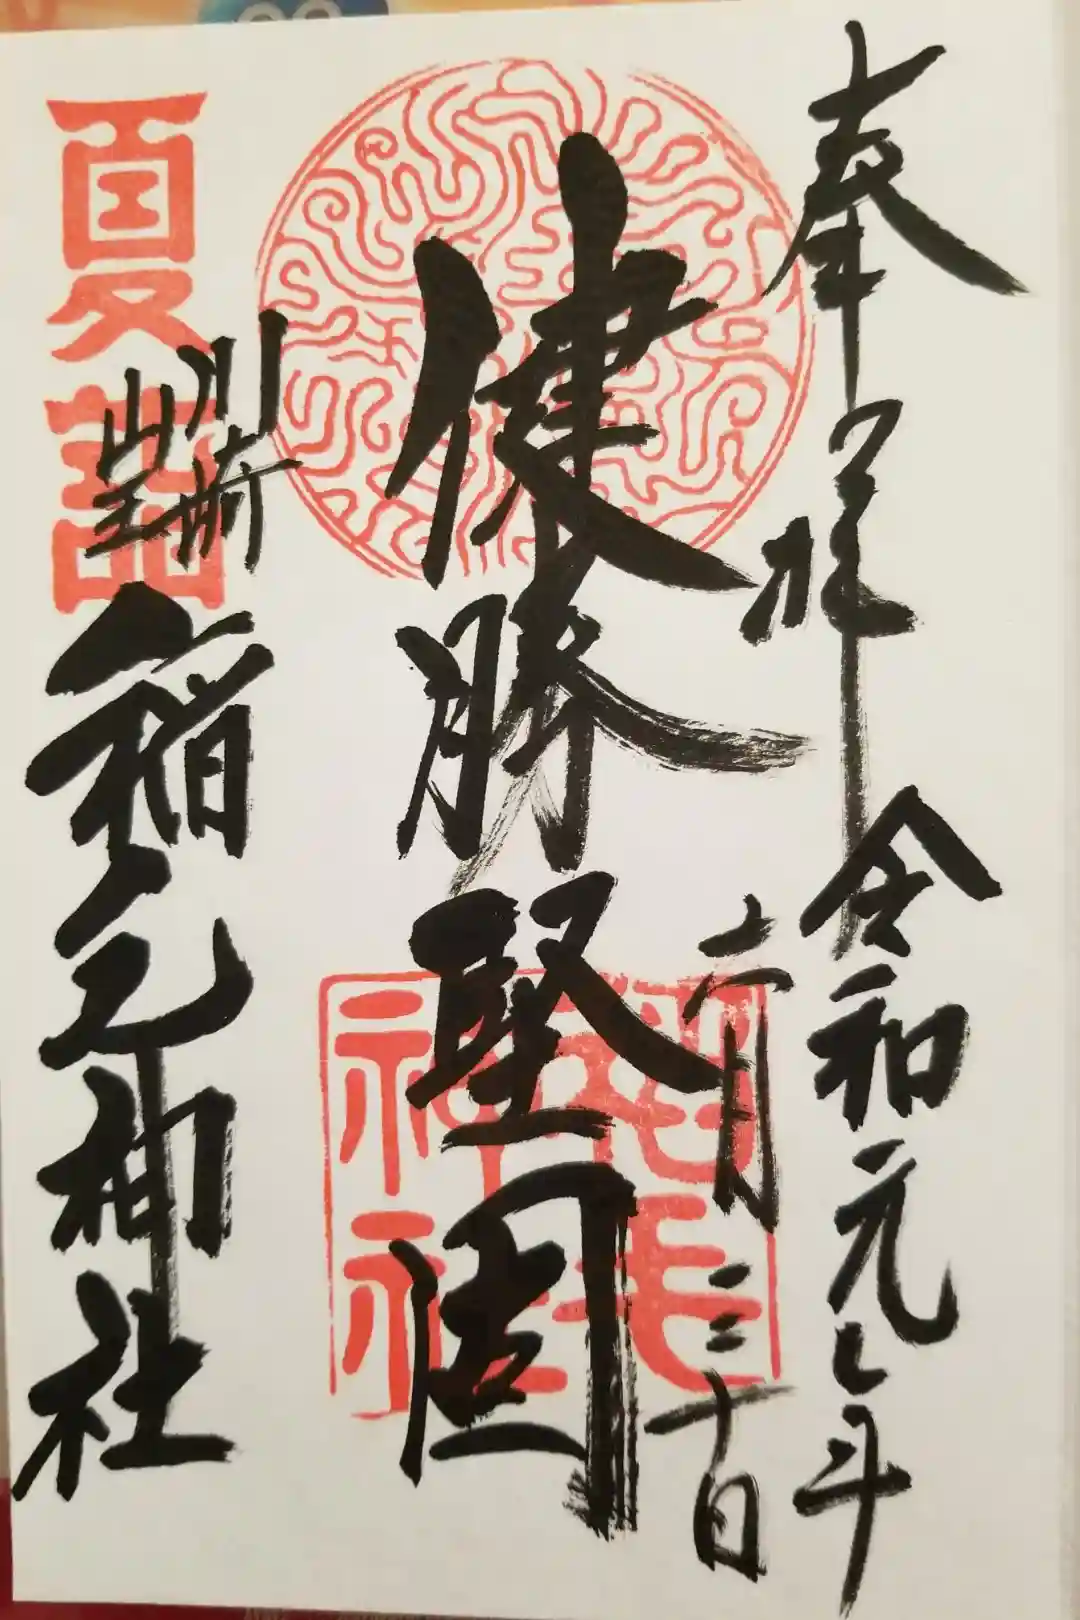 奉拝
令和元年
六月三十日
健勝堅固
川崎
山王
稲毛神社
夏詣
稲毛
神社